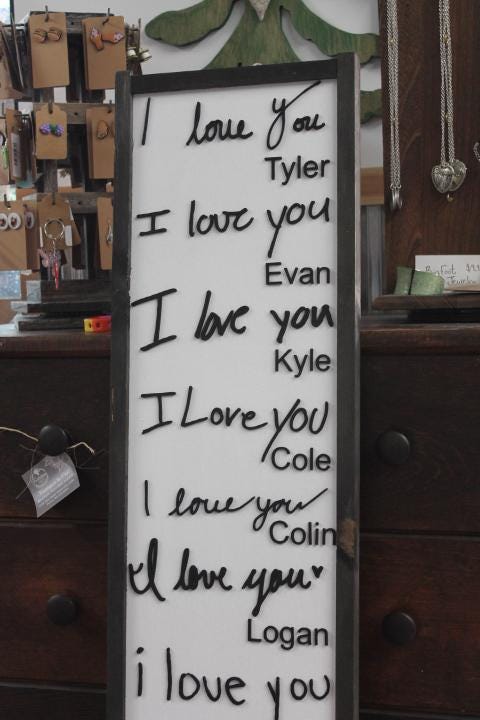 I love you
Tyler
I love you
Evan
I love you
Kyle
I Love you
Cole
I love you
Colin
I love you
Logan
i love you
Bigfoot